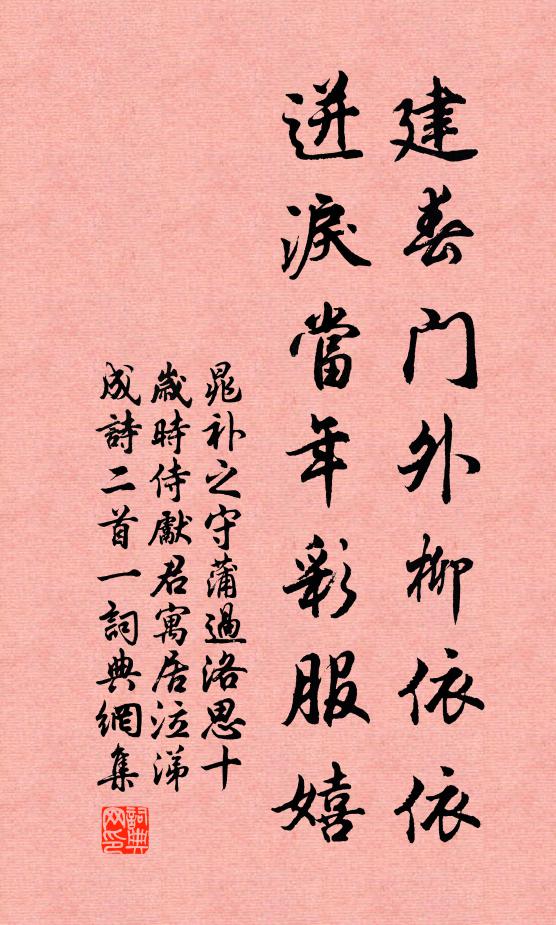 建春门外柳依依
迸淚當年彩服嬉
晁补之守蒲過洛思十
歲時侍獻君寓居泣涕
成詩二首一詞典網集
詞典网印